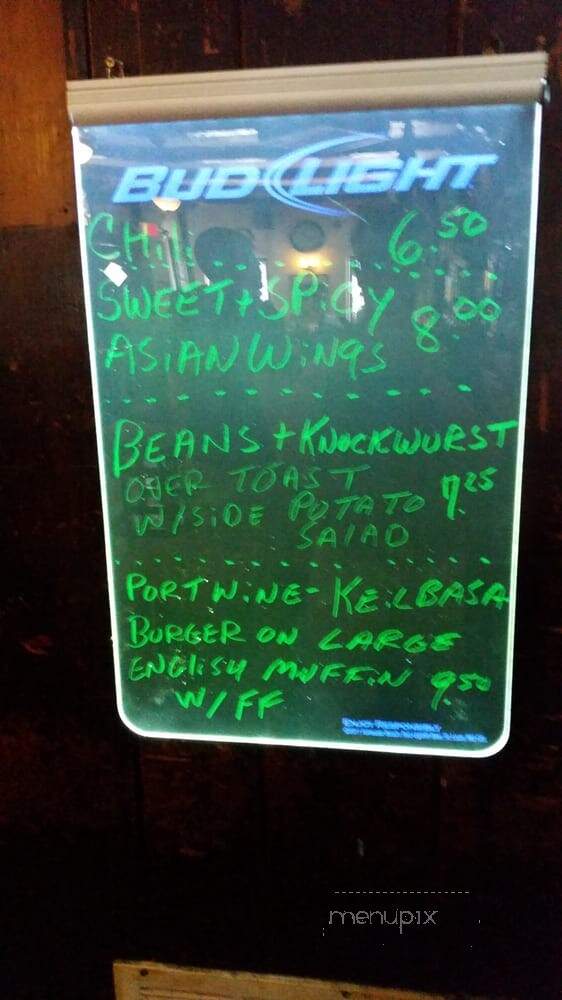 BUD LIGHT
CHiLi 6.50
SWEET + SPiCY
ASIAN WiNgS 8.00
BEANS + KNOCKWURST
OVER TOAST
W/SiDE POTATO 7.25
SALAD
PORT WiNE - KEiLBASA
BURGER ON LARGE
ENGLiSH MUFFiN 9.50
W/FF
ENJOY RESPONSIBLY
menupix